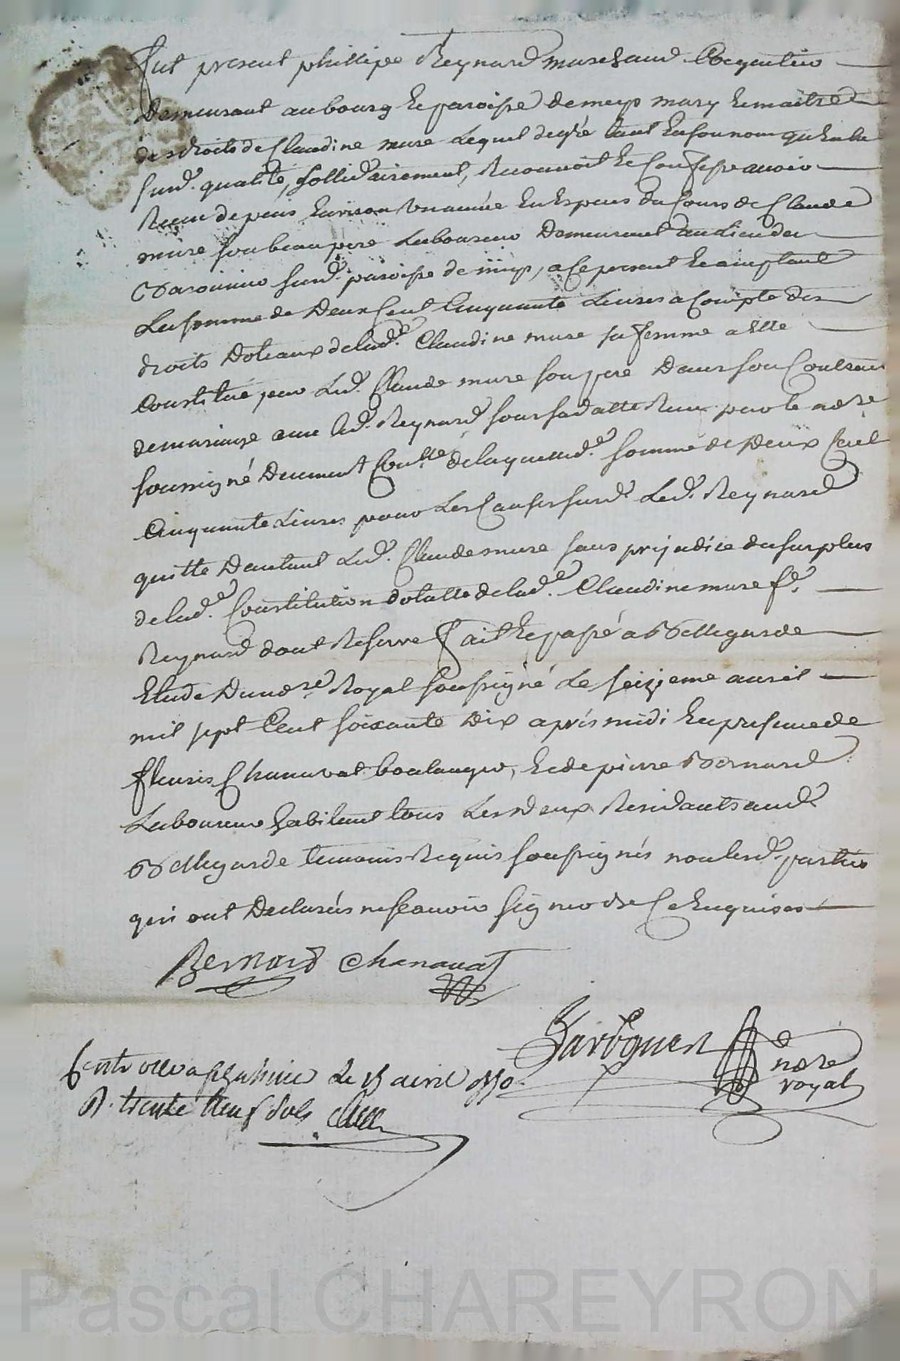 fut present phillipe Reynard marchand Coquetier
Demeurant au bourg & paroisse de meys mary & maitre
des droits de Claudine mure Lequel de gré tant En son nom qu'En la
susd. qualité, sollidairement, Reconnoit & Confesse avoir
Receu depuis Environ une année En Espèces du Cours de Claude
mure son beaupere Laboureur Demeurant au Lieu du
susd. paroisse de meys, a ce present & acceptant
La somme de Deux Cent Cinquante Livres a Compte des
droits Doteaux de lad.e Claudine mure sa femme a Elle
Constitué par Led. Claude mure son pere Dans son Contrat
de mariage avec led. Reynard sous sa datte Receu par le no.re
soussigné Deument Con.llé de laquelle d.e somme de Deux Cent
Cinquante Livres pour Les Causes susd. Led. Reynard
quitte D'autant Led. Claude mure sans prejudice du surplus
de lad.e Constitution dotalle de lad.e Claudine mure f.e
Reynard dont Reserve fait & passé a Bellegarde
Etude Du no.re Royal soussigné Le seizieme avril
mil sept Cent soixante Dix après midi En presence de
fleuris Chanavat boulanger, & de pierre Bernard
Laboureur habitant tous Les deux Residants aud.
Bellegarde temoins Requis soussignés non lesd. parties
qui ont Declarés ne sçavoir signer de Ce Enquises
Bernard Chanavat
no.re
royal
Controllé a Le avril 1770.
R. trente neuf sols
Pascal CHAREYRON